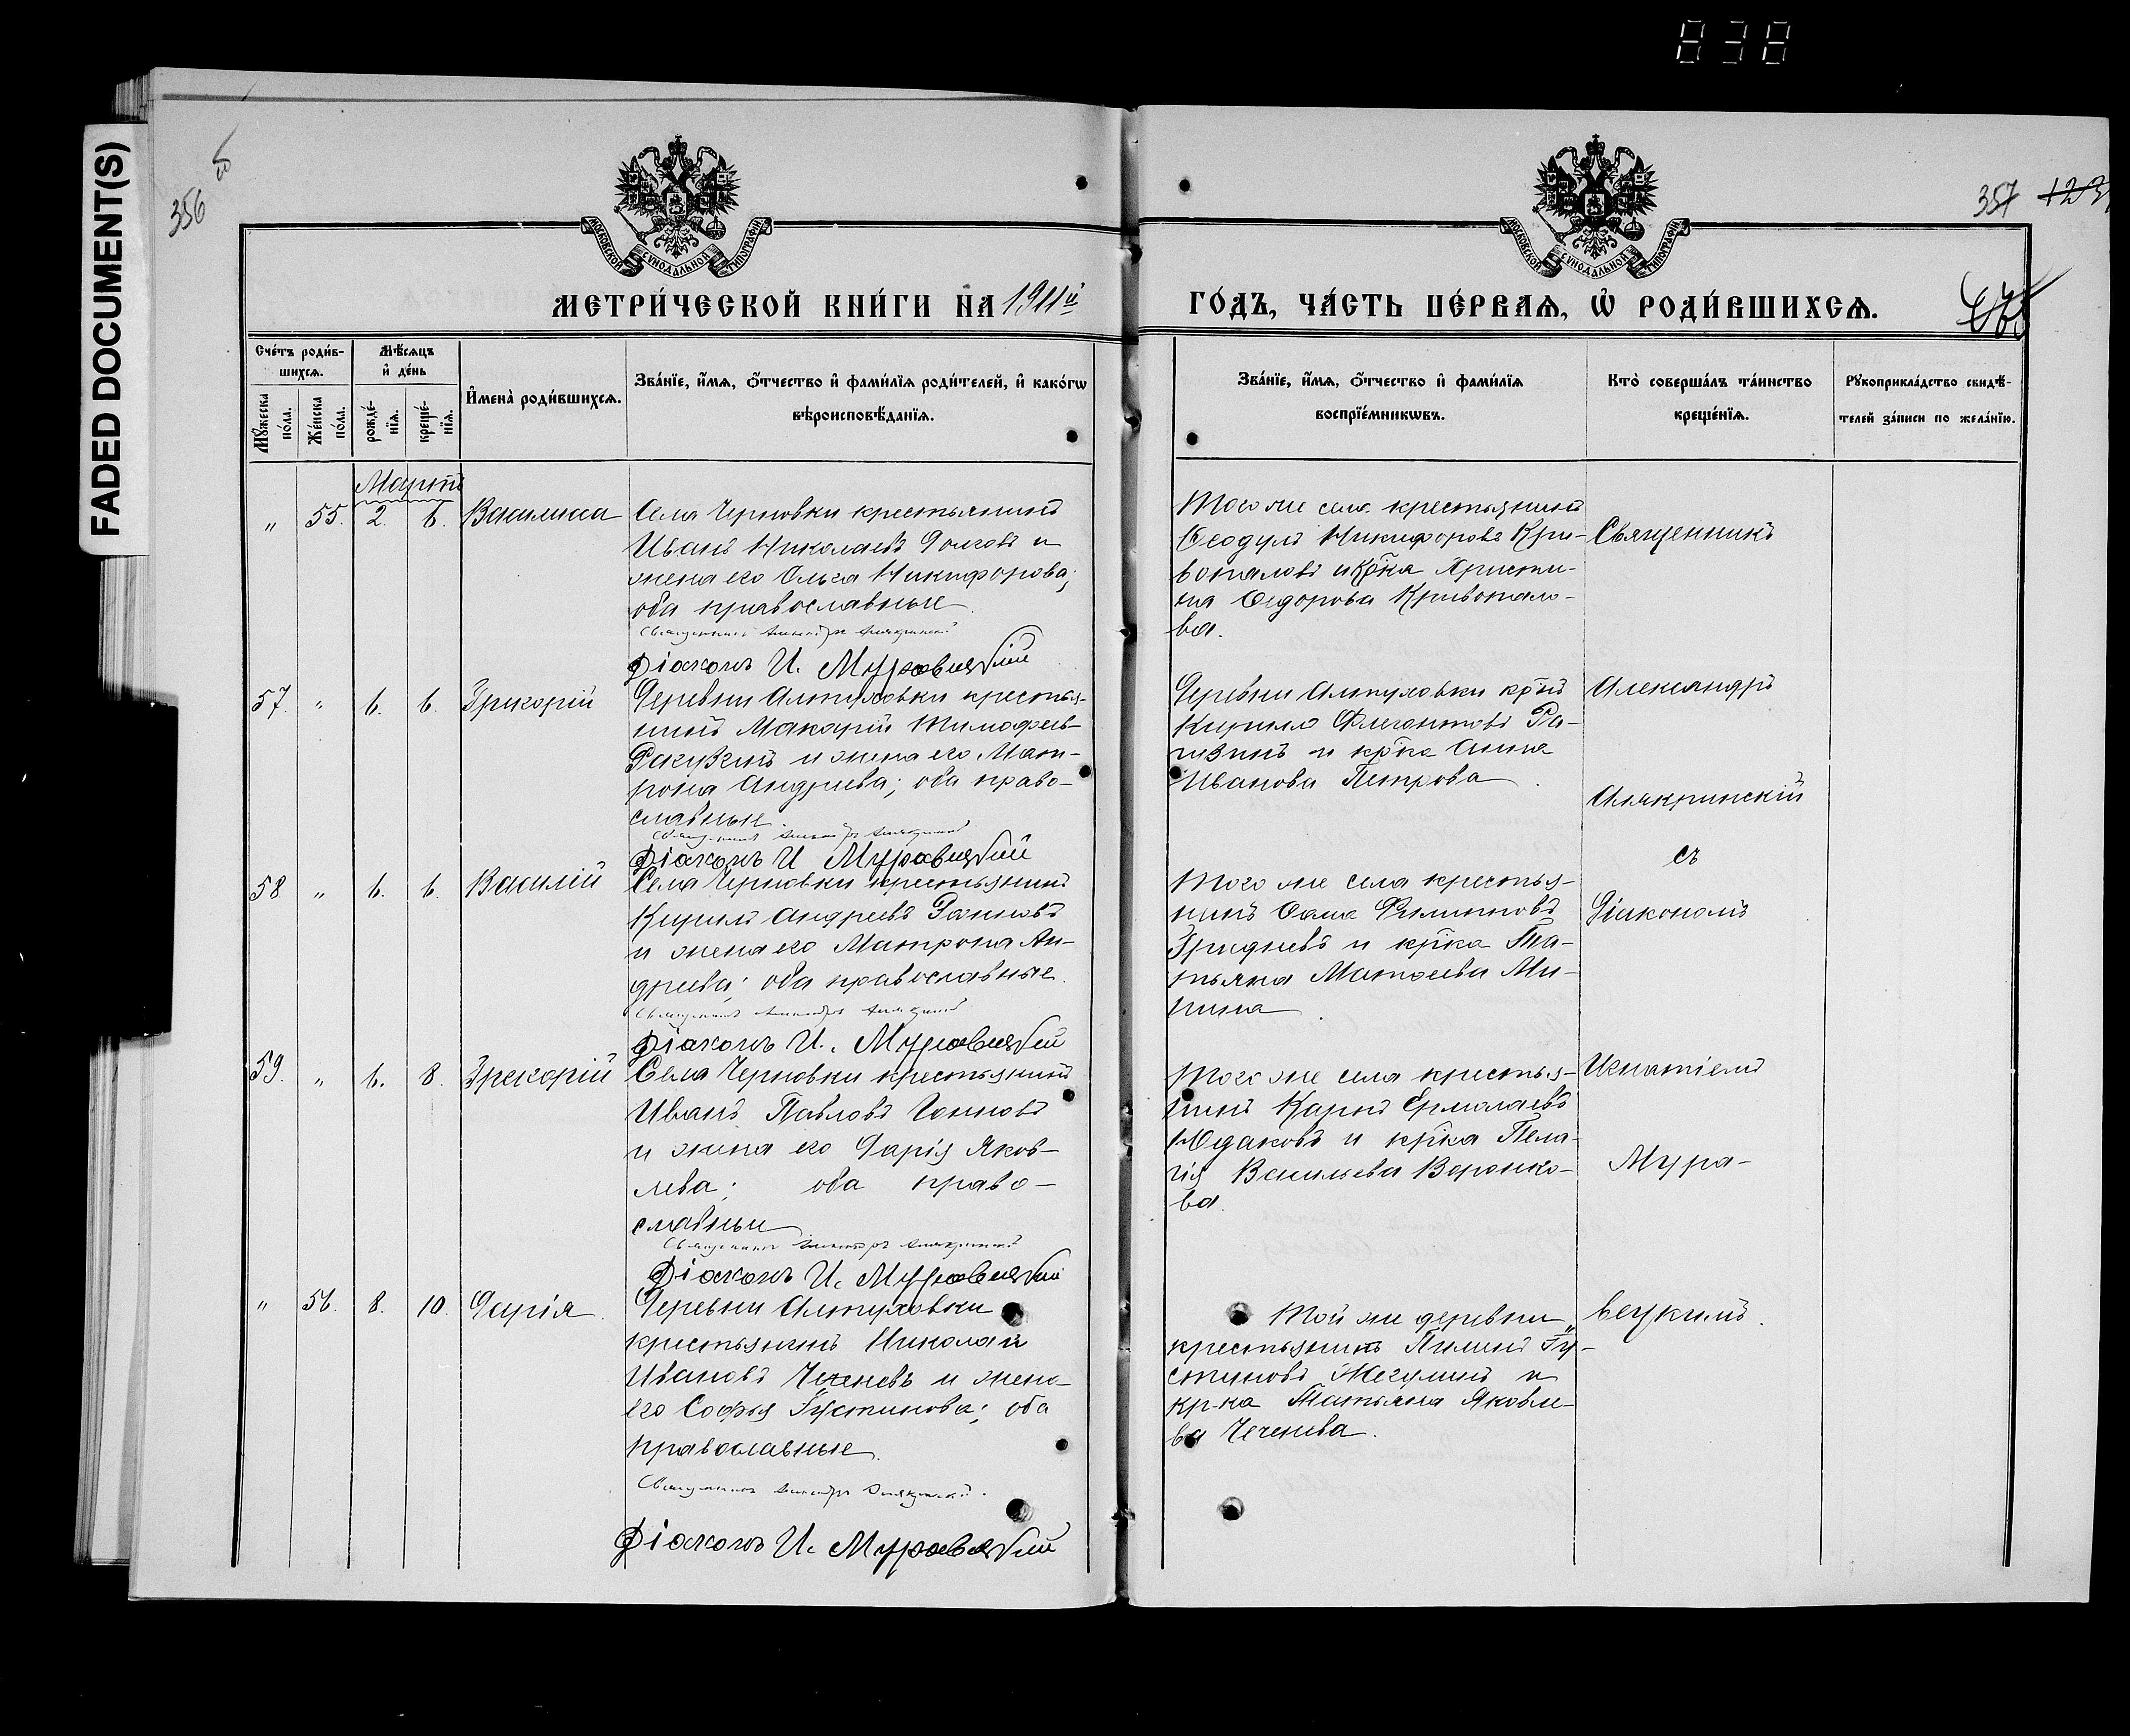 838
FADED DOCUMENT(S)
356
357 123
МОСКОВСКОЙ СѴНОДАЛЬНОЙ ТИПОГРАФІИ
МОСКОВСКОЙ СѴНОДАЛЬНОЙ ТИПОГРАФІИ
МЕТРИ́ЧЕСКОЙ КНИ́ГИ НА 1911й
ГО́ДЪ, ЧА́СТЬ ПЕ́РВАѦ, Ѡ҆ РОДИ́ВШИХСѦ.
Сче́тъ роди́в-
шихсѧ.
Мꙋ́жеска по́ла.
Же́нска по́ла.
Мѣ́сѧцъ
и҆ де́нь
рожде́-
нїѧ.
креще́-
нїѧ.
И҆мена̀ роди́вшихсѧ.
Зва́нїе, и҆́мѧ, ѻ҆́тчество и҆ фами́лїѧ роди́телей, и҆ како́гѡ
вѣроисповѣ́данїѧ.
Зва́нїе, и҆́мѧ, ѻ҆́тчество и҆ фами́лїѧ
воспрїе́мникѡвъ.
Кто̀ соверша́лъ та́инство
креще́нїѧ.
Рꙋкоприкла́дство свидѣ́-
телей за́писи по жела́нїю.
Мартъ
" 55. 2. 6. Василиса
Села Черновки крестьянинъ
Иванъ Николаевъ Долговъ и
жена его Ольга Никифорова;
оба православные.
Священникъ Александръ Алякринскій
Діаконъ И. Муравецкій
Того же села крестьянинъ
Ѳеодулъ Никифоровъ Кри-
вопаловъ и кр-ка Христи-
на Ѳедорова Кривопало-
ва.
Священникъ
57. " 6. 6. Григорій
Деревни Алтуховки крестья-
нинъ Макарій Тимофеевъ
и жена его Мат-
рона Андреева; оба право-
славные.
Священникъ Александръ Алякринскій
Діаконъ И Муравецкій
Деревни Алтуховки кр-нъ
Кирилло Флегонтовъ
и кр-ка Анна
Иванова Петрова.
Александръ
Алякринскій
съ
58 " 6. 6. Василій
Села Черновки крестьянинъ
Кирилъ Андреевъ
и жена его Матрона Ан-
дреева; оба православные.
Священникъ Александръ Алякринскій
Діаконъ И. Муравецкій
Того же села крестья-
нинъ Филипповъ
Гридневъ и кр-ка Та-
тьяна Матѳеева Ми-
нина.
Діакономъ
59. " 6. 8. Григорій
Села Черновки крестьянинъ
Иванъ Павловъ
и жена его Дарія Яков-
лева; оба право-
славные
Священникъ Александръ Алякринскій
Діаконъ И. Муравецкій
Того же села крестья-
нинъ Карпъ Ермолаевъ
Юдаковъ и кр-ка Пела-
гія Васильева Воронко-
ва.
Игнатіемъ
Мура-
" 56. 8. 10. Дарія.
Деревни Алтуховки
крестьянинъ Николай
Ивановъ Чеченевъ и жена
его Софья Густинова; оба
православные.
Священникъ Александръ Алякринскій.
Діаконъ И. Муравецкій
Той же деревни
крестьянинъ Пименъ Гу-
стиновъ Жегулинъ и
кр-ка Татьяна Яковле-
ва Чеченева.
вецкимъ.